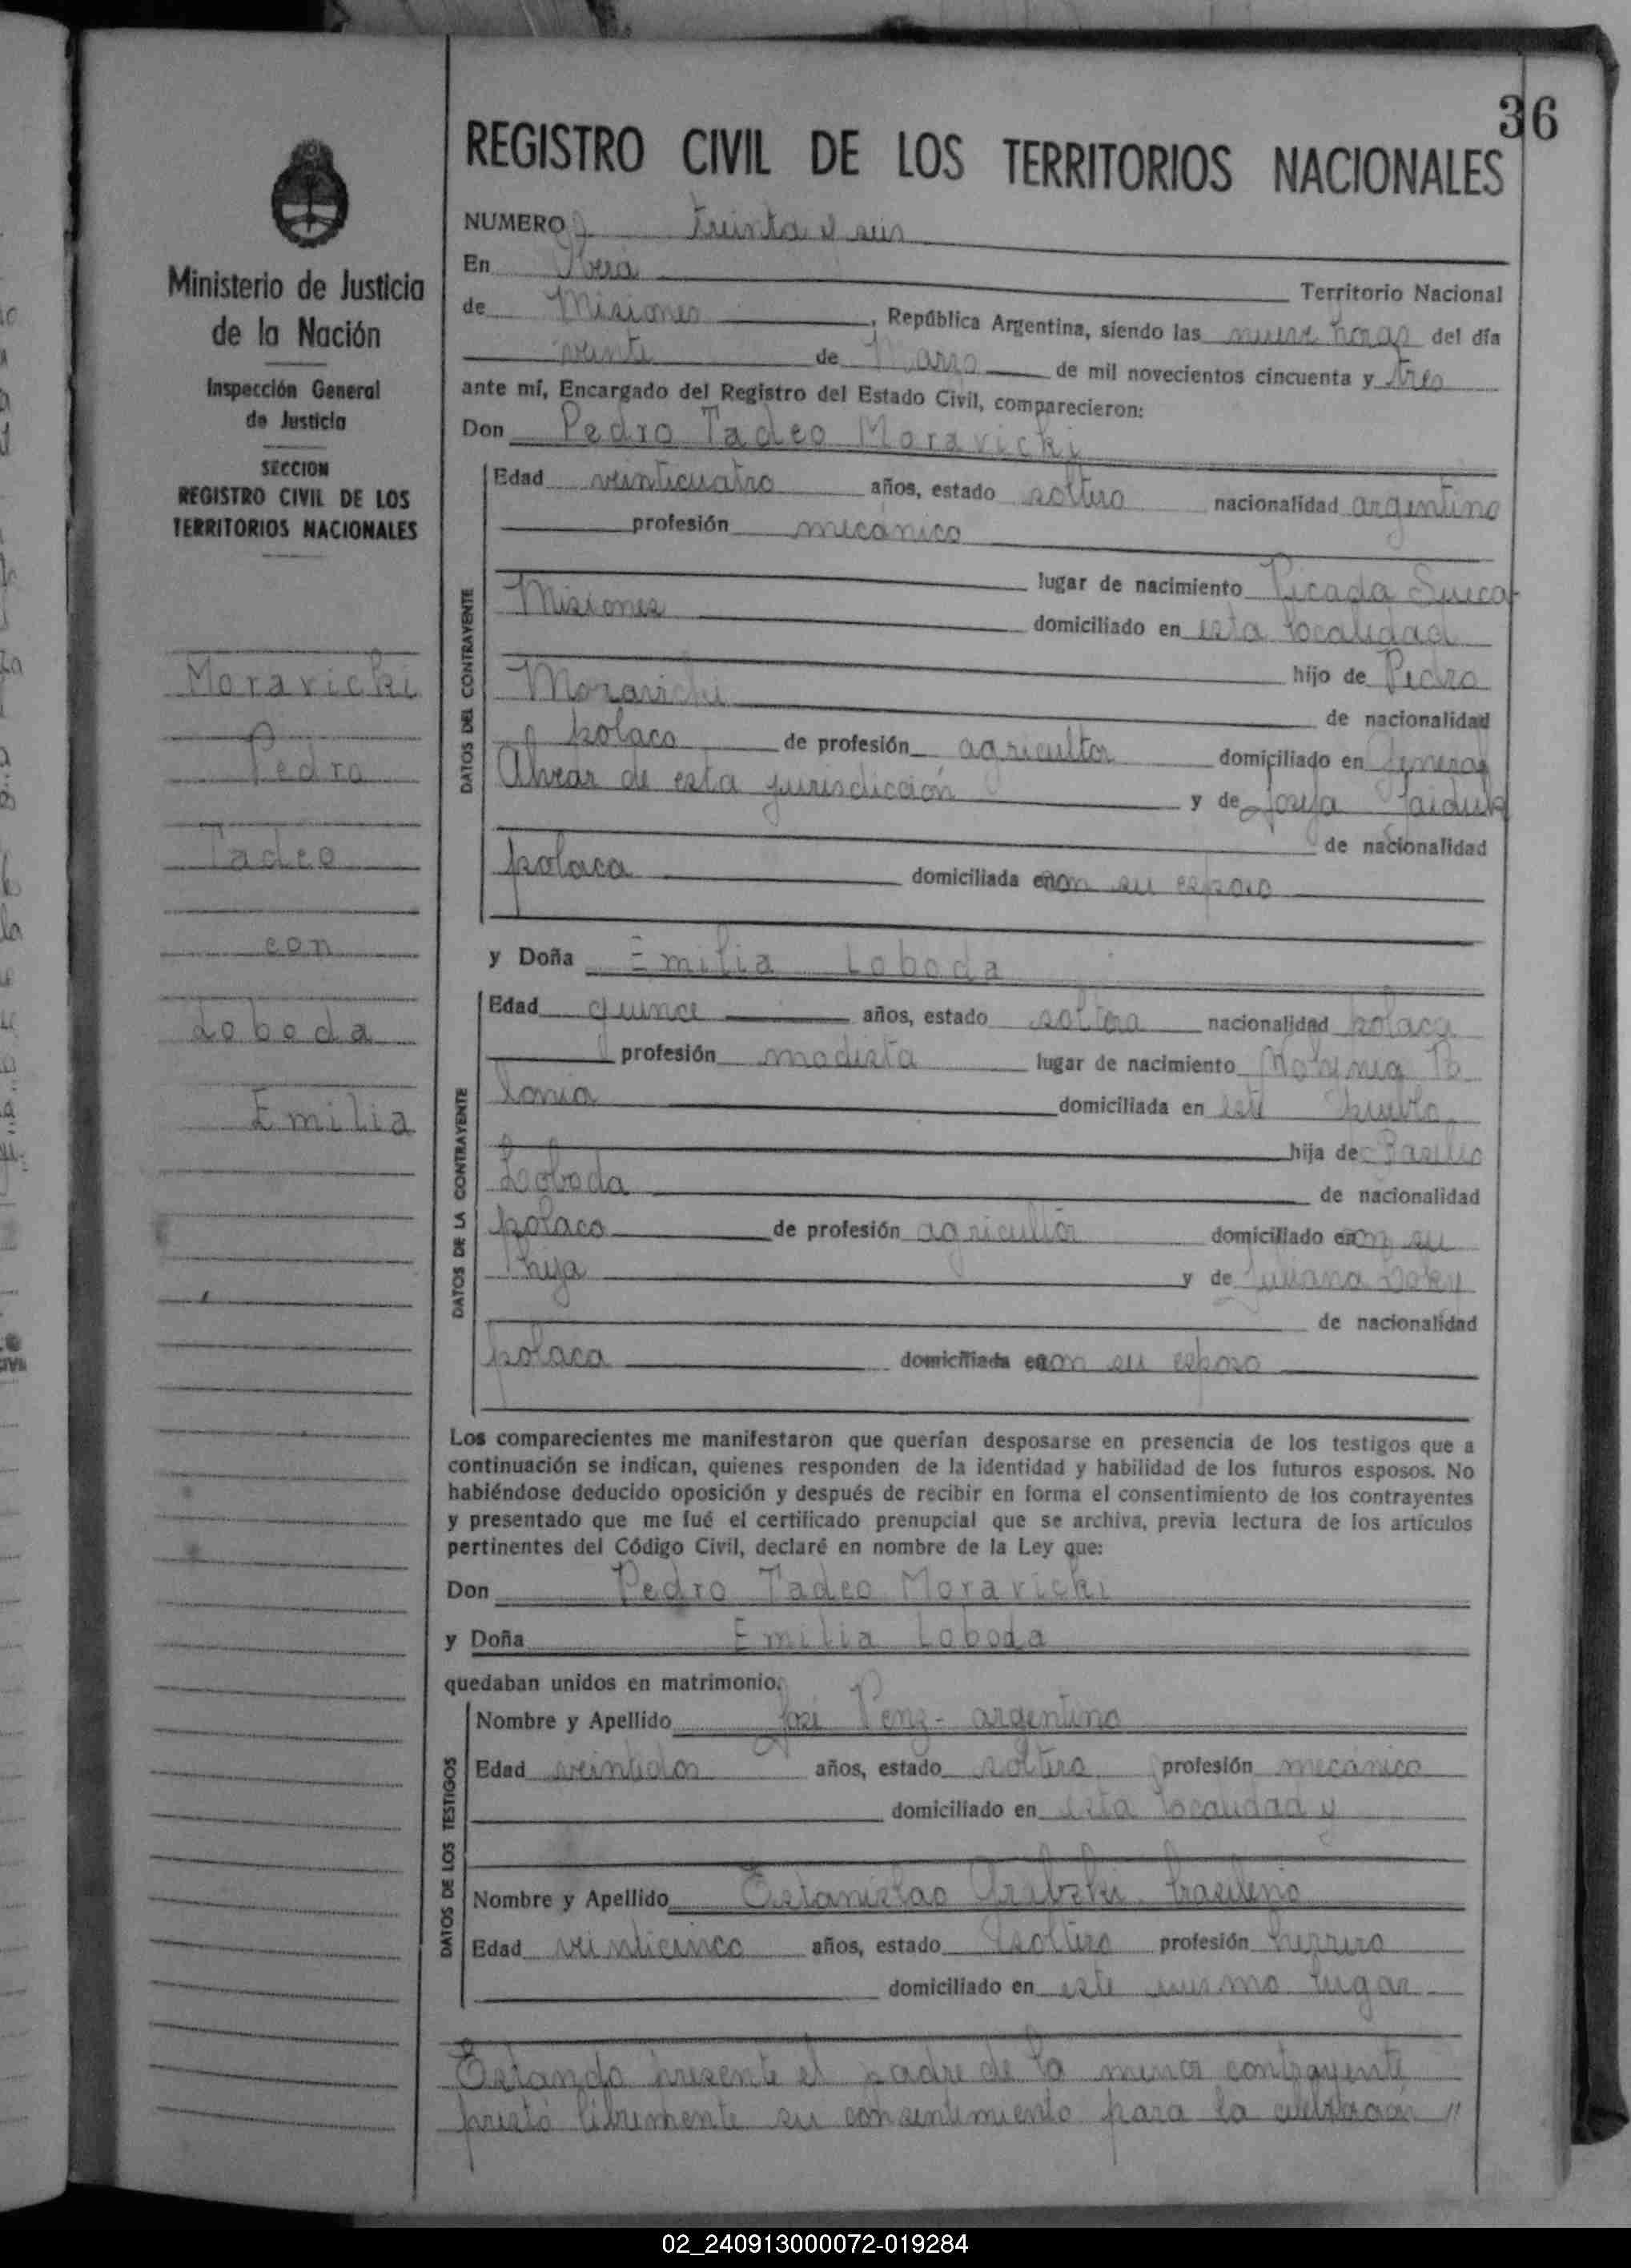 36
REGISTRO CIVIL DE LOS TERRITORIOS NACIONALES
Ministerio de Justicia
de la Nación
Inspección General
de Justicia
SECCION
REGISTRO CIVIL DE LOS
TERRITORIOS NACIONALES
Moravicki
Pedro
Tadeo
con
Loboda
Emilia
NUMERO treinta y seis
En Oberá Territorio Nacional
de Misiones, República Argentina, siendo las nueve horas del día
veinte de Marzo de mil novecientos cincuenta y tres
ante mí, Encargado del Registro del Estado Civil, comparecieron:
Don Pedro Tadeo Moravicki
DATOS DEL CONTRAYENTE
Edad veinticuatro años, estado soltero nacionalidad argentino
profesión mecánico
lugar de nacimiento Picada Sueca-
Misiones domiciliado en esta localidad
hijo de Pedro
Moravicki de nacionalidad
polaco de profesión agricultor domiciliado en General
Alvear de esta jurisdicción y de Josefa
de nacionalidad
polaca domiciliada en con su esposo
y Doña Emilia Loboda
DATOS DE LA CONTRAYENTE
Edad quince años, estado soltera nacionalidad polaca
profesión modista lugar de nacimiento Po
lonia domiciliada en este pueblo
hija de Basilio
Loboda de nacionalidad
polaco de profesión agricultor domiciliado en con su
hija y de Juliana
de nacionalidad
polaca domiciliada en con su esposo
Los comparecientes me manifestaron que querían desposarse en presencia de los testigos que a
continuación se indican, quienes responden de la identidad y habilidad de los futuros esposos. No
habiéndose deducido oposición y después de recibir en forma el consentimiento de los contrayentes
y presentado que me fué el certificado prenupcial que se archiva, previa lectura de los artículos
pertinentes del Código Civil, declaré en nombre de la Ley que:
Don Pedro Tadeo Moravicki
y Doña Emilia Loboda
quedaban unidos en matrimonio.
DATOS DE LOS TESTIGOS
Nombre y Apellido José Penz - argentino
Edad veintidos años, estado soltero profesión mecánico
domiciliado en esta localidad y
Nombre y Apellido Estanislao brasileño
Edad veinticinco años, estado soltero profesión herrero
domiciliado en este mismo lugar
Estando presente el padre de la menor contrayente
prestó libremente su consentimiento para la celebración //
02_240913000072-019284